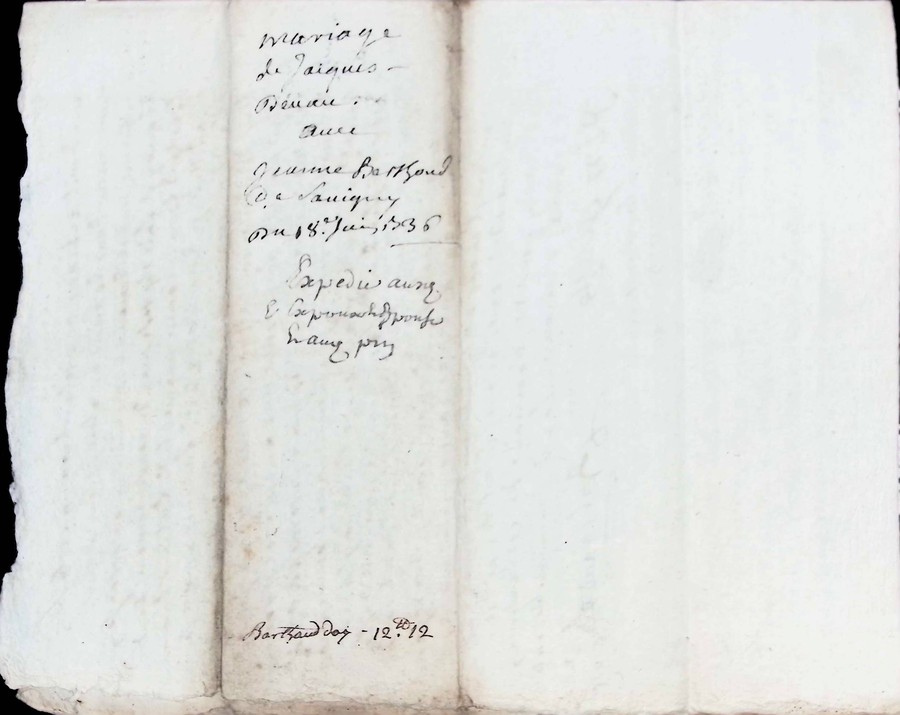 Mariage
de Jacques
Benau
avec
Jeanne Barthoud
De Savigny
Du 18.e Juin 1736
Expedie aux
Expoux & Epouse
& aux
Barthaud doy - 12.tt 12